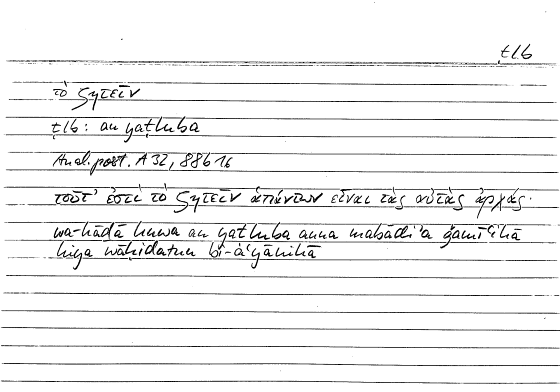 ṭlb
τὸ ζητεῖν
ṭlb: an yaṭluba
Anal. post. A 32, 88b16
τοῦτ' ἐστὶ τὸ ζητεῖν ἁπάντων εἶναι τὰς αὐτὰς ἀρχάς.
wa-hāḏā huwa an yaṭluba anna mabādi'a ǧamīʿihā
hiya wāḥidatun bi-aʿyānihā